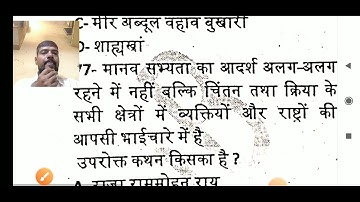 C- मीर अब्दूल वहाव बुखारी
D- शाह्मखां
77- मानव सभ्यता का आदर्श अलग-अलग
रहने में नहीं वल्कि चिंतन तथा क्रिया के
सभी क्षेत्रों में व्यक्तियों और राष्ट्रों की
आपसी भाईचारे में है
उपरोक्त कथन किसका है ?
A- राजा राममोहन राय